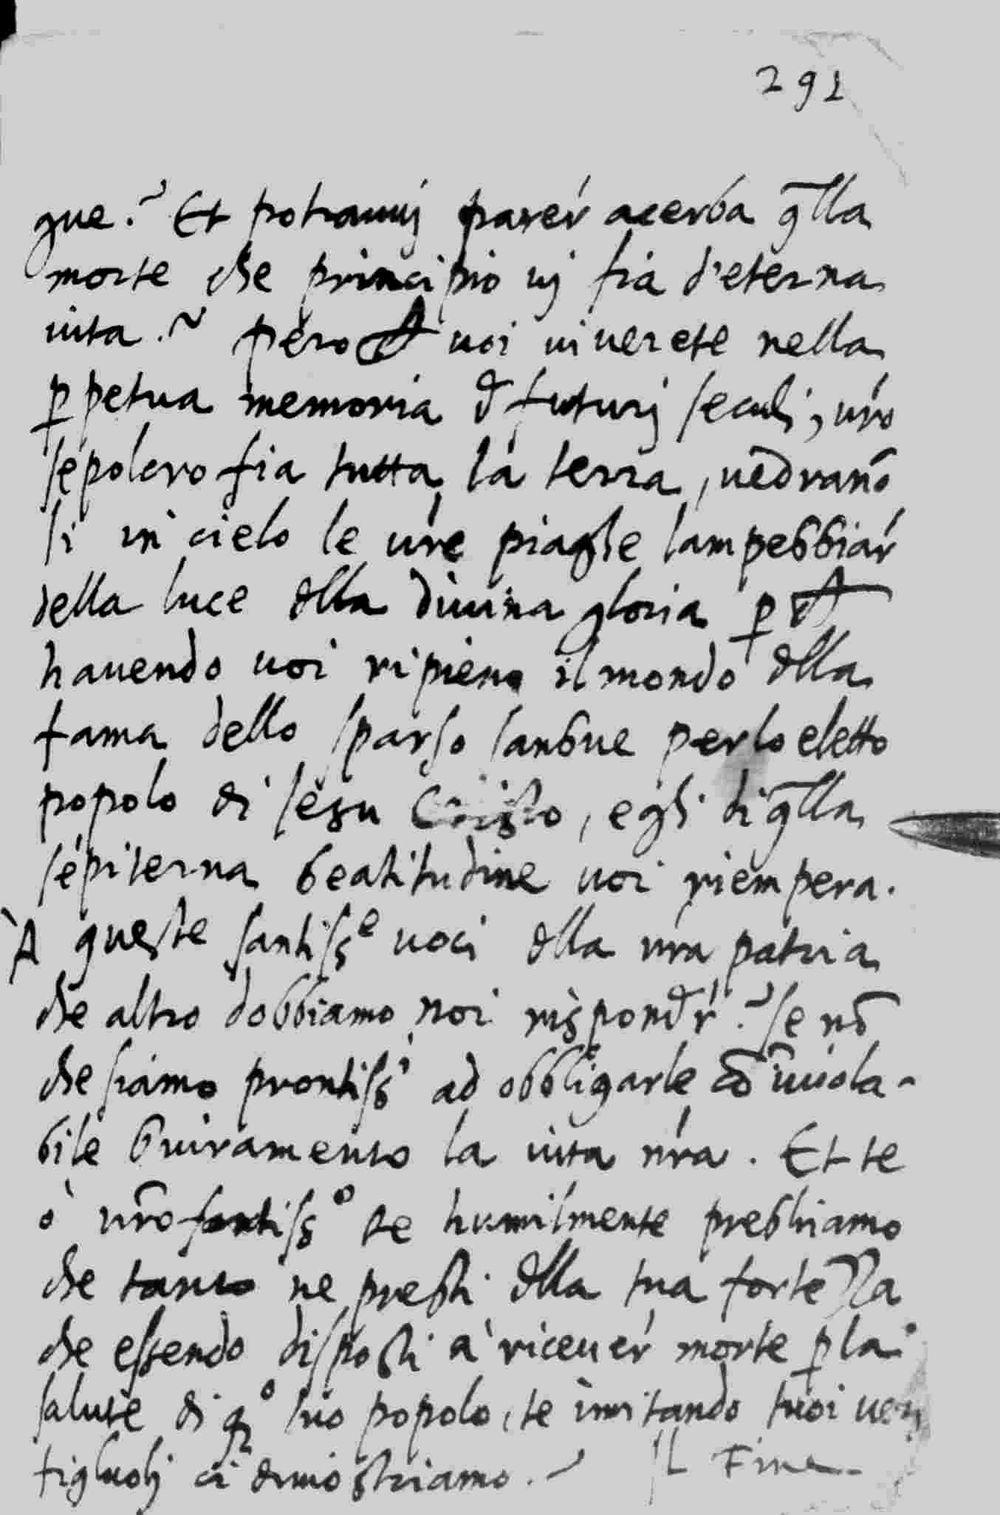 291
gue? Et potrauuj parer acerba qlla
morte che principio uj fia d'eterna
uita? pero voi uiuerete nella
ppetua memoria d futurj seculi, uro
sepolcro fia tutta la terra, uedrano
si in cielo le ure piaghe lampeggiar
della luce dlla diuina gloria p
hauendo uoi ripieno il mondo dlla
fama dello sparso sangue perlo eletto
popolo di iesu Cristo, egli di qlla
sepiterna beatitudine uoi riempera.
A queste santisse uoci dlla nra patria
che altro dobbiamo noi rispondr? se no
che siamo prontissi ad obbligarle co inuiola-
bile giuramento la uita nra. Et te
o santisso te humilmente preghiamo
che tanto ne presti dlla tua fortezza
che essendo disposti à riceuer morte p la
salute di qo tuo popolo, te imitando tuoi ueri
figluolj ci dimostriamo. Il Fine.